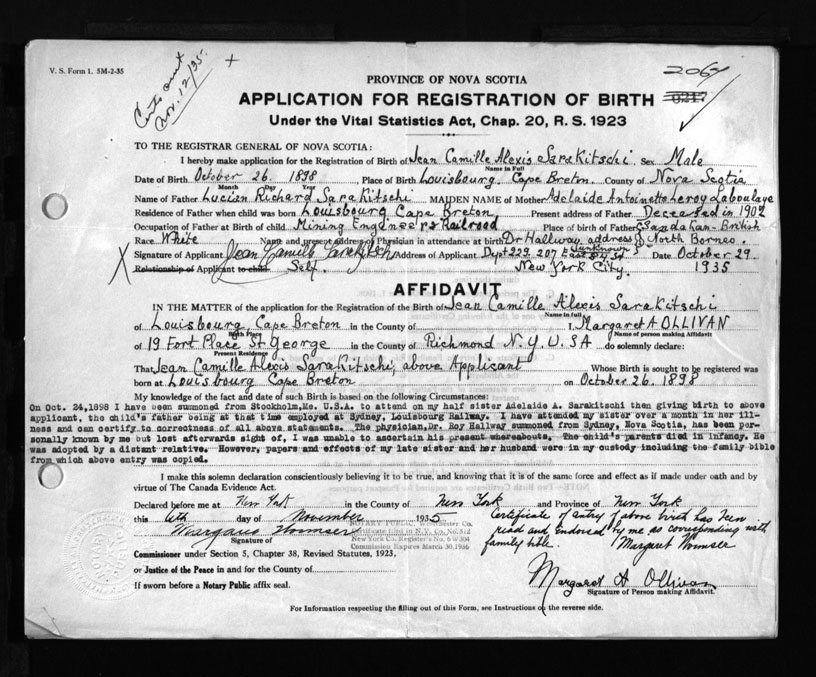 V. S. Form 1. 5M-2-35
Nov. 12/35.
PROVINCE OF NOVA SCOTIA
2067
APPLICATION FOR REGISTRATION OF BIRTH
Under the Vital Statistics Act, Chap. 20, R. S. 1923
TO THE REGISTRAR GENERAL OF NOVA SCOTIA:
I hereby make application for the Registration of Birth of Jean Camille Alexis Sarakitschi Sex Male
Name in Full
Date of Birth October 26. 1898 Place of Birth Louisbourg. Cape Breton. County of Nova Scotia
Month Day Year
Name of Father Lucien Richard Sarakitschi MAIDEN NAME of Mother Adelaide Antoinette Leroy Laboulaye
Residence of Father when child was born Louisbourg Cape Breton, Present address of Father Deceased in 1902
Occupation of Father at Birth of child Mining Engeneer & Railroad Place of birth of Father Sandakan-British North Borneo.
Race White Name and present address of Physician in attendance at birth Dr Hallway, address unknown
Signature of Applicant Jean Camille Address of Applicant Dept 223 207 East 84 St Date October 29.
Relationship of Applicant to child Self. New York City. 1935
AFFIDAVIT
IN THE MATTER of the application for the Registration of the Birth of Jean Camille Alexis Sarakitschi
Name in Full
of Louisbourg, Cape Breton in the County of I, Margaret A OLLIVAN
Birth Place Name of person making Affidavit
of 19 Fort Place St George in the County of Richmond N.Y. U.SA do solemnly declare:
Present Residence
That Jean Camille Alexis Sarakitschi, above Applicant Whose Birth is sought to be registered was
born at Louisbourg Cape Breton on October 26, 1898
My knowledge of the fact and date of such Birth is based on the following Circumstances:
On Oct. 24,1898 I have been summoned from Stockholm,Me. U.S.A. to attend on my half sister Adelaide A. Sarakitschi then giving birth to above
applicant, the child's father being at that time employed at Sydney, Louisbourg Railway. I have attended my sister over a month in her ill-
ness and can certify to correctness of all above statements. The physician,Dr. Roy Hallway summoned from Sydney, Nova Scotia, has been per-
sonally known by me but lost afterwards sight of, I was unable to ascertain his present whereabouts. The child's parents died in infancy. He
was adopted by a distant relative. However, papers and effects of my late sister and her husband were in my custody including the family bible
from which above entry was copied.
I make this solemn declaration conscientiously believing it to be true, and knowing that it is of the same force and effect as if made under oath and by
virtue of The Canada Evidence Act.
Declared before me at New York in the County of New York and Province of New York
this 6th day of November 1935
Certificate of entry of above birth has been
read and endorsed by me as corresponding with
family bible. Margaret
NOTARY PUBLIC, Westchester Co.
Certificate filed in N.Y. Co. No. 812
New York Co. Register's No. 6 W 304
Commission Expires March 30, 1936
Signature of
Commissioner under Section 5, Chapter 38, Revised Statutes, 1923,
or Justice of the Peace in and for the County of
If sworn before a Notary Public affix seal.
Margaret A Ollivan
Signature of Person making Affidavit.
For Information respecting the filling out of this Form, see Instructions on the reverse side.